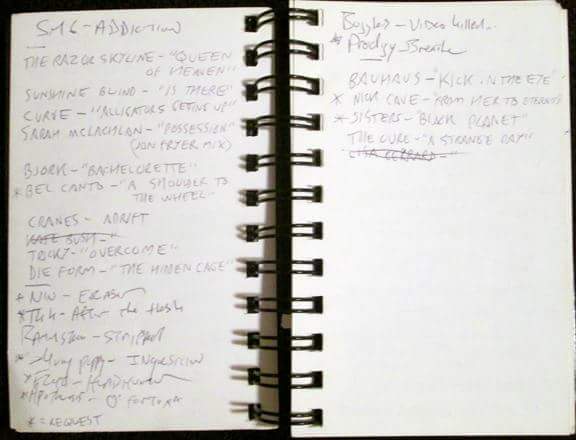 SMG - ADDICTION
THE RAZOR SKYLINE - "QUEEN
OF HEAVEN"
SUNSHINE BLIND - "IS THERE"
CURVE - "ALLIGATORS GETTING UP"
SARAH MCLACHLAN - "POSSESSION"
(JON FRYER MIX)
BJORK - "BACHELORETTE"
* BEL CANTO - "A SHOULDER TO
THE WHEEL"
CRANES - ADRIFT
KATE BUSH - "
TRICKY - "OVERCOME"
DIE FORM - "THE HIDDEN CAGE"
* NIN - Eraser
* TKK - After the flesh
Rammstein - STRIPPED
* Skinny puppy - Ingestion
* - HeadHunter
* -
* = REQUEST
Buggles - Video killed..
* Prodigy Breathe
BAUHAUS - "KICK IN THE EYE"
* NICK CAVE - "FROM HER TO ETERNITY"
* SISTERS - "BLACK PLANET"
THE CURE - "A STRANGE DAY"
LISA GERRARD - "